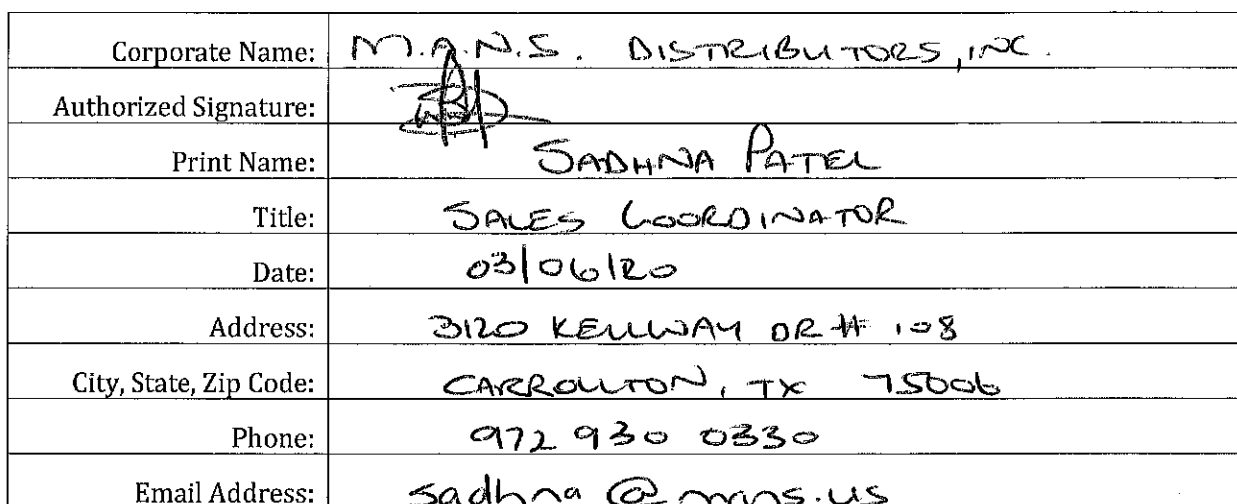 Corporate Name: M.A.N.S. DISTRIBUTORS, INC.
Authorized Signature:
Print Name: SADHNA PATEL
Title: SALES COORDINATOR
Date: 03/06/20
Address: 3120 KELLWAY DR # 108
City, State, Zip Code: CARROLLTON, TX 75006
Phone: 972 930 0330
Email Address: sadhna@mans.us